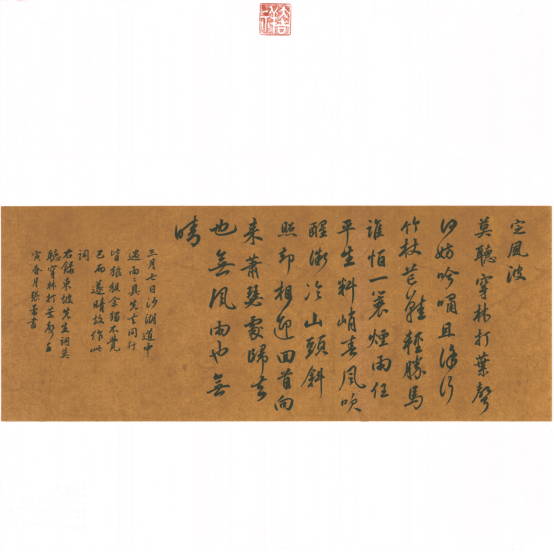 定風波
莫聽穿林打葉聲
何妨吟嘯且徐行
竹杖芒鞋輕勝馬
誰怕一蓑煙雨任
平生料峭春風吹
醒微冷山頭斜
照却相迎回首向
來蕭瑟處歸去
也無風雨也無
晴
三月七日沙湖道中
遇雨雨具先去同行
皆狼狽余獨不覺
已而遂晴故作此
詞
右錄東坡先生詞莫
聽穿林打葉聲
寅春月張書